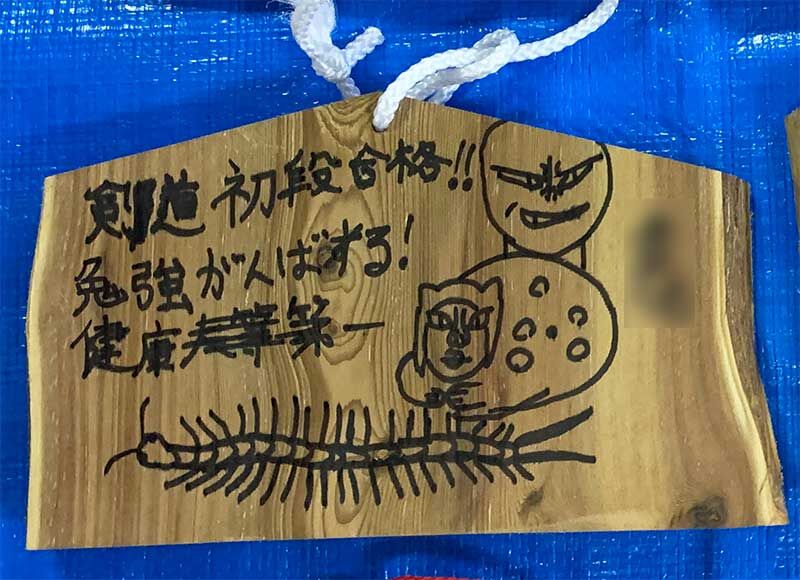 剣道 初段合格!!
勉強がんばする!
健康第一